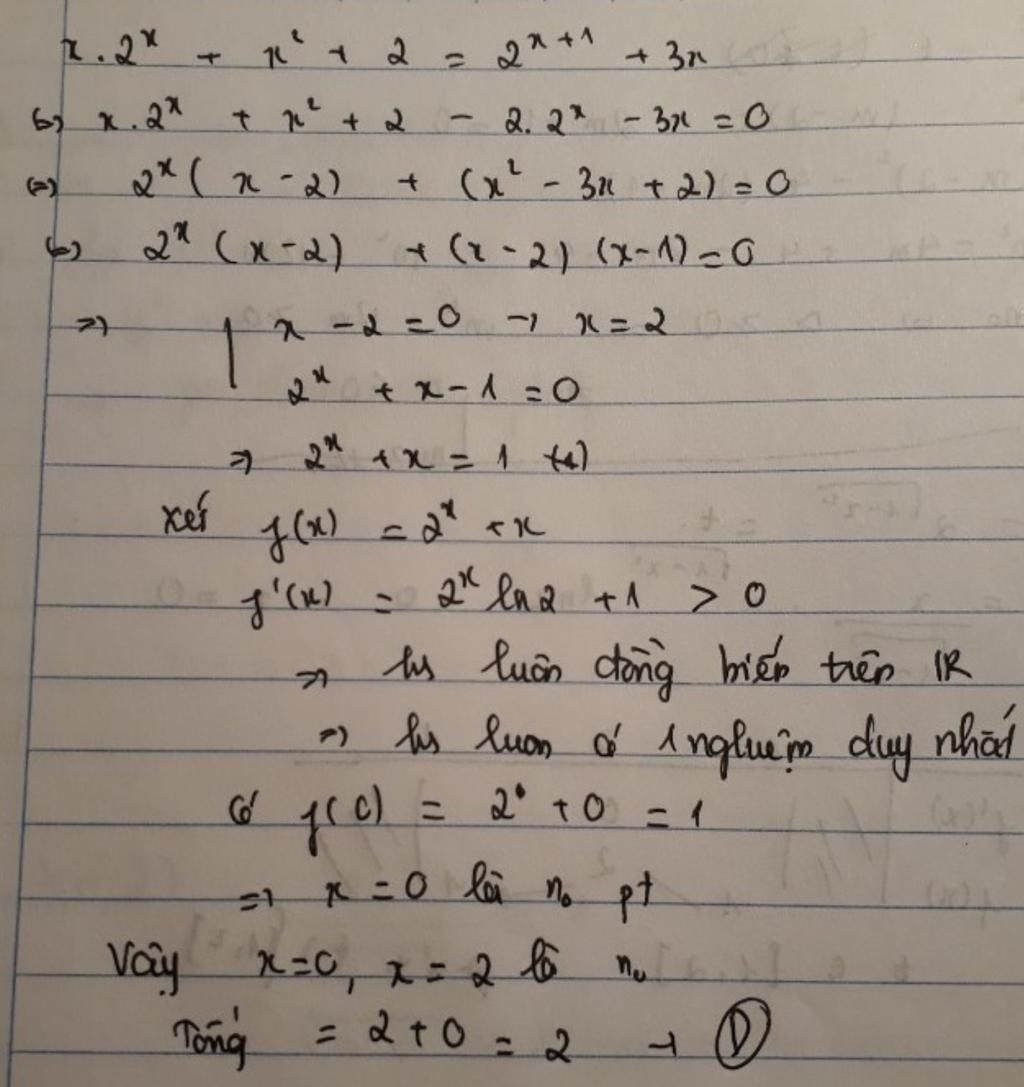 x.2ˣ + x² + 2 = 2ˣ⁺¹ + 3x
(=) x.2ˣ + x² + 2 - 2.2ˣ - 3x = 0
(=) 2ˣ(x-2) + (x² - 3x + 2) = 0
(=) 2ˣ(x-2) + (x-2)(x-1) = 0
=> x - 2 = 0 → x = 2
2ˣ + x - 1 = 0
=> 2ˣ + x = 1 (1)
xét f(x) = 2ˣ + x
f'(x) = 2ˣ ln2 + 1 > 0
=> hs luôn đồng biến trên IR
=> hs luon có 1 nghiệm duy nhất
Có f(0) = 2⁰ + 0 = 1
=> x = 0 là n₀ pt
Vậy x=0, x = 2 là n₀
Tổng = 2 + 0 = 2 → D